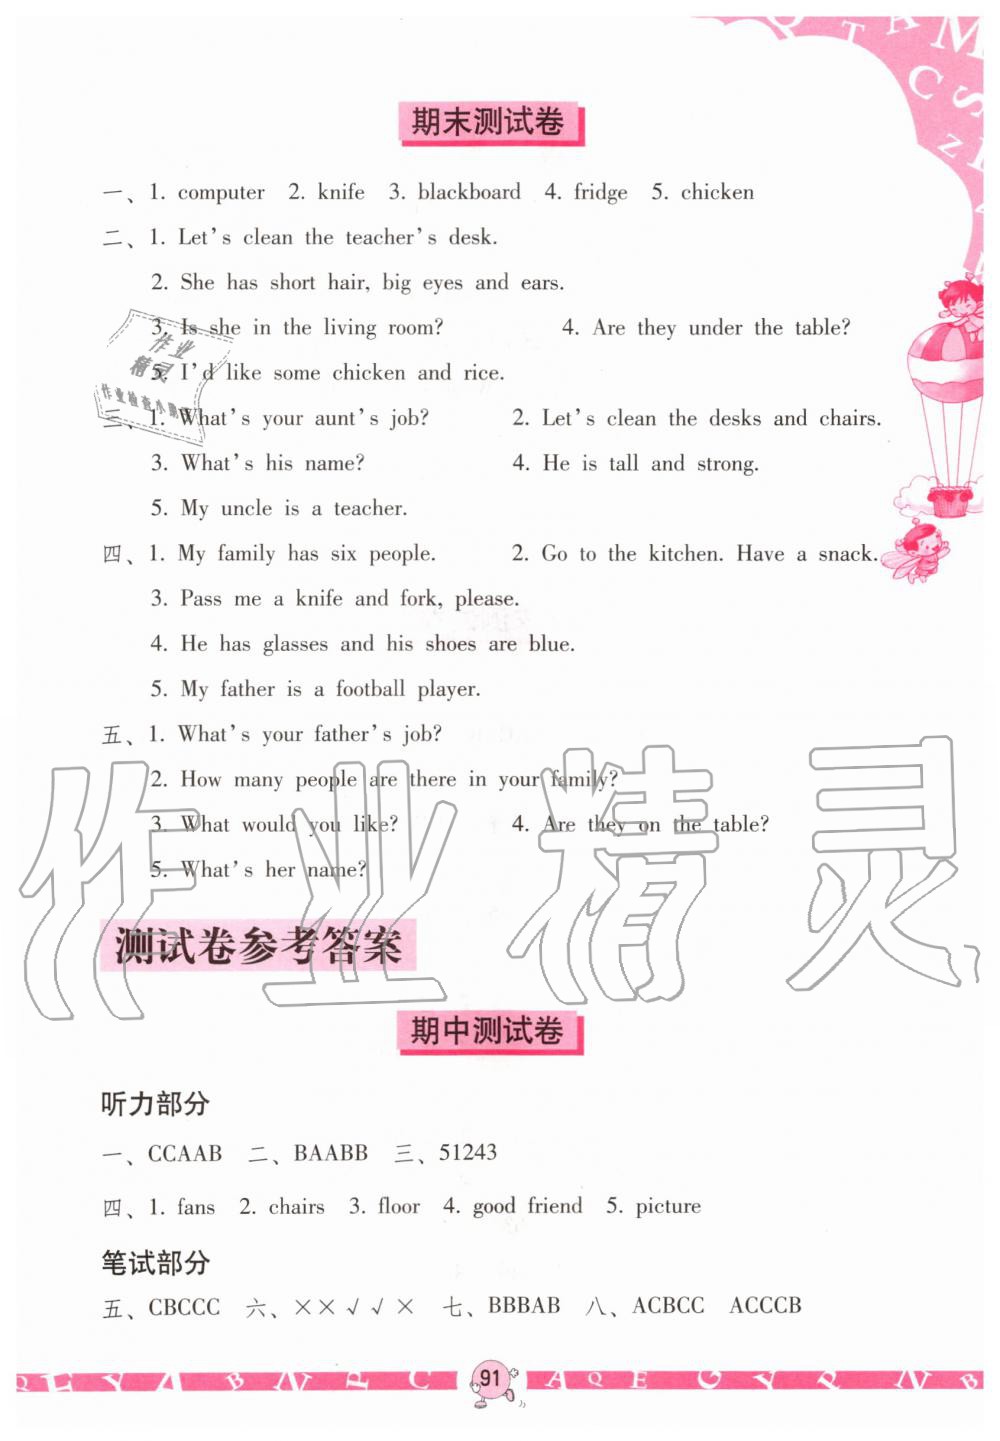 期末测试卷
一、1. computer 2. knife 3. blackboard 4. fridge 5. chicken
二、1. Let's clean the teacher's desk.
2. She has short hair, big eyes and ears.
3. Is she in the living room? 4. Are they under the table?
5. I'd like some chicken and rice.
三、1. What's your aunt's job? 2. Let's clean the desks and chairs.
3. What's his name? 4. He is tall and strong.
5. My uncle is a teacher.
四、1. My family has six people. 2. Go to the kitchen. Have a snack.
3. Pass me a knife and fork, please.
4. He has glasses and his shoes are blue.
5. My father is a football player.
五、1. What's your father's job?
2. How many people are there in your family?
3. What would you like? 4. Are they on the table?
5. What's her name?
作业精灵
测试卷参考答案
期中测试卷
听力部分
一、CCAAB 二、BAABB 三、51243
四、1. fans 2. chairs 3. floor 4. good friend 5. picture
笔试部分
五、CBCCC 六、××√√× 七、BBBAB 八、ACBCC ACCCB
91